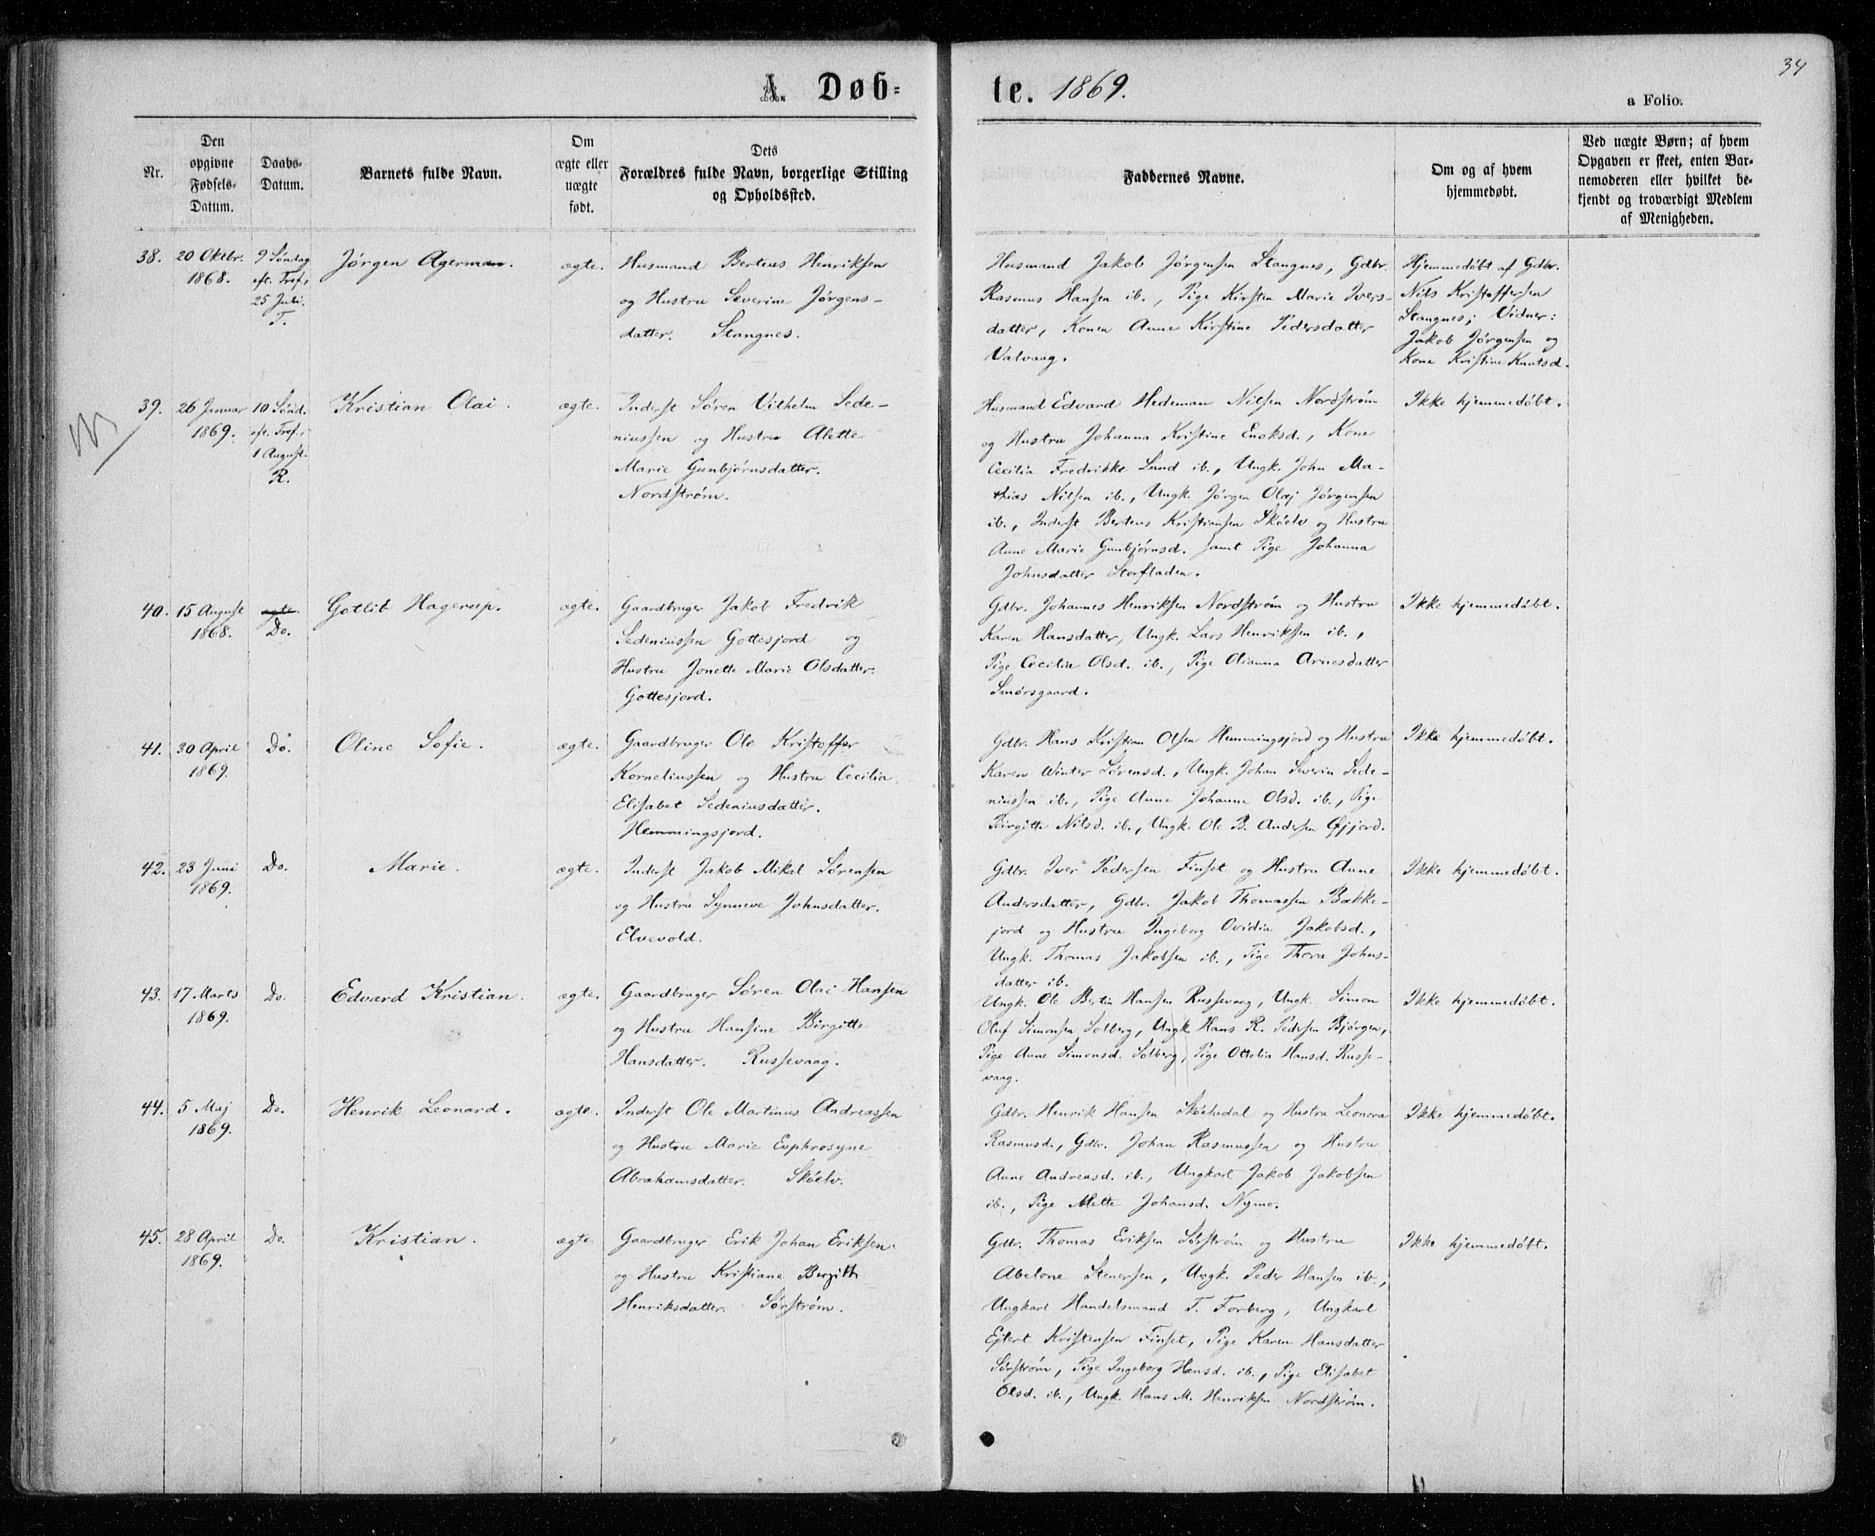 34
A. Døb-
te. 1869.
a Folio.
Nr.
Den
opgivne
Fødsels-
Datum.
Daabs-
Datum.
Barnets fulde Navn.
Om
ægte eller
uægte
født.
Dets
Forældres fulde Navn, borgerlige Stilling
og Opholdssted.
Faddernes Navne.
Om og af hvem
hjemmedøbt.
Ved uægte Børn; af hvem
Opgaven er skeet, enten Bar-
nemoderen eller hvilket be-
kjendt og troværdigt Medlem
af Menigheden.
38.
20 Oktbr.
1868.
9 Søndag
eft. Tref,
25 Juli.
T.
Jørgen Agerman.
ægte.
Husmand Berteus Henriksen
og Hustru Severine Jørgens-
datter. Stangnes.
Husmand Jakob Jørgensen Stangnes, Gdbr.
Rasmus Hansen ib., Pige Kirsten Marie Ivers-
datter, Konen Anne Kirstine Pedersdatter
Valvaag.
Hjemmedøbt af Gdbr.
Nils Kristoffersen
Stangnes; Vidner:
Jakob Jørgensen og
Kone Kristine Knutsd.
39.
26 Januar
1869.
10 Sønd.
eft. Tref.,
1 August.
R.
Kristian Olai.
ægte.
Inderst Søren Vilhelm Sede-
niussen og Hustru Alette
Marie Gunbjørnsdatter.
Nordstrøm.
Husmand Edvard Hedeman Nilsen Nordstrøm
og Hustru Johanna Kristine Enoksd., Kone
Cecilia Fredrikke Lund ib., Ungk. John Ma-
thias Nilsen ib., Ungk. Jørgen Olaj Jørgensen
ib., Inderst Berteus Kristiansen Skøelv og Hustru
Anne Marie Gunbjørnsd. samt Pige Johanna
Johnsdatter Storsladen.
Ikke hjemmedøbt.
40.
15 August
1868.
ægte.
Do.
Gotlib Hagerup.
ægte.
Gaardbruger Jakob Fredrik
Sedeniussen Gottesjord og
Hustru Jonette Marie Olsdatter.
Gottesjord.
Gdbr. Johannes Henriksen Nordstrøm og Hustru
Karen Hansdatter, Ungk. Lars Henriksen ib.,
Pige Cecilia Olsd. ib., Pige Olianna Arnesdatter
Smørsgaard.
Ikke hjemmedøbt.
41.
30 April
1869.
Do.
Oline Sofie.
ægte.
Gaardbruger Ole Kristoffer
Korneliussen og Hustru Cecilia
Elisabet Sedeniusdatter.
Hemmingsjord.
Gdbr. Hans Kristian Olsen Hemmingsjord og Hustru
Karen Winter Sørensd., Ungk. Johan Severin Sede-
niussen ib., Pige Anne Johanne Olsd. ib., Pige
Birgitte Nilsd. ib., Ungk. Ole B. Andersen Øjjord.
Ikke hjemmedøbt.
42.
23 Juni
1869.
Do.
Marie.
ægte.
Inderst Jakob Mikal Sørensen
og Hustru Synneve Johnsdatter.
Elvevold.
Gdbr. Iver Pedersen Finset og Hustru Anne
Andersdatter, Gdbr. Jakob Thomassen Bakke-
jord og Hustru Ingeborg Ovidia Jakobsd.,
Ungk. Thomas Jakobsen ib., Pige Thora Johns-
datter ib.
Ikke hjemmedøbt.
43.
17 Marts
1869.
Do.
Edvard Kristian.
ægte.
Gaardbruger Søren Olai Hansen
og Hustru Hansine Birgitte
Hansdatter. Russevaag.
Ungk. Ole Bertin Hansen Russevaag, Ungk. Simon
Oluf Simonsen Solberg, Ungk Hans R. Pedersen Bjørgen,
Pige Anne Simonsd. Solberg, Pige Ottelia Hansd. Russe-
vaag.
Ikke hjemmedøbt.
44.
5 Maj
1869.
Do.
Henrik Leonard.
ægte.
Inderst Ole Martinus Andreassen
og Hustru Marie Euphrosyne
Abrahamsdatter. Skøelv.
Gdbr. Henrik Hansen Skøhedal og Hustru Leonora
Rasmusd., Gdbr. Johan Rasmussen og Hustru
Anne Andreasd. ib., Ungkarl Jakob Jakobsen
ib., Pige Mette Johansd. Nymo.
Ikke hjemmedøbt.
45.
28 April
1869.
Do.
Kristian.
ægte
Gaardbruger Erik Johan Eriksen
og Hustru Kristiane Bergith
Henriksdatter. Sørstrøm.
Gdbr. Thomas Eriksen Sørstrøm og Hustru
Abelone Stenersen, Ungk. Peder Hansen ib.,
Ungkarl Handelsmand T. Forberg, Ungkarl
Ejlert Kristensen Finset, Pige Karen Hansdatter
Sørstrøm, Pige Ingeborg Hansd. ib., Pige Elisabet
Olsd. ib., Ungk. Hans M. Henriksen Nordstrøm.
Ikke hjemmedøbt.